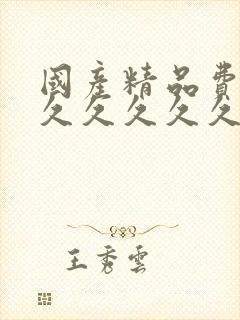 國産精品費
久久久久久
王秀雲